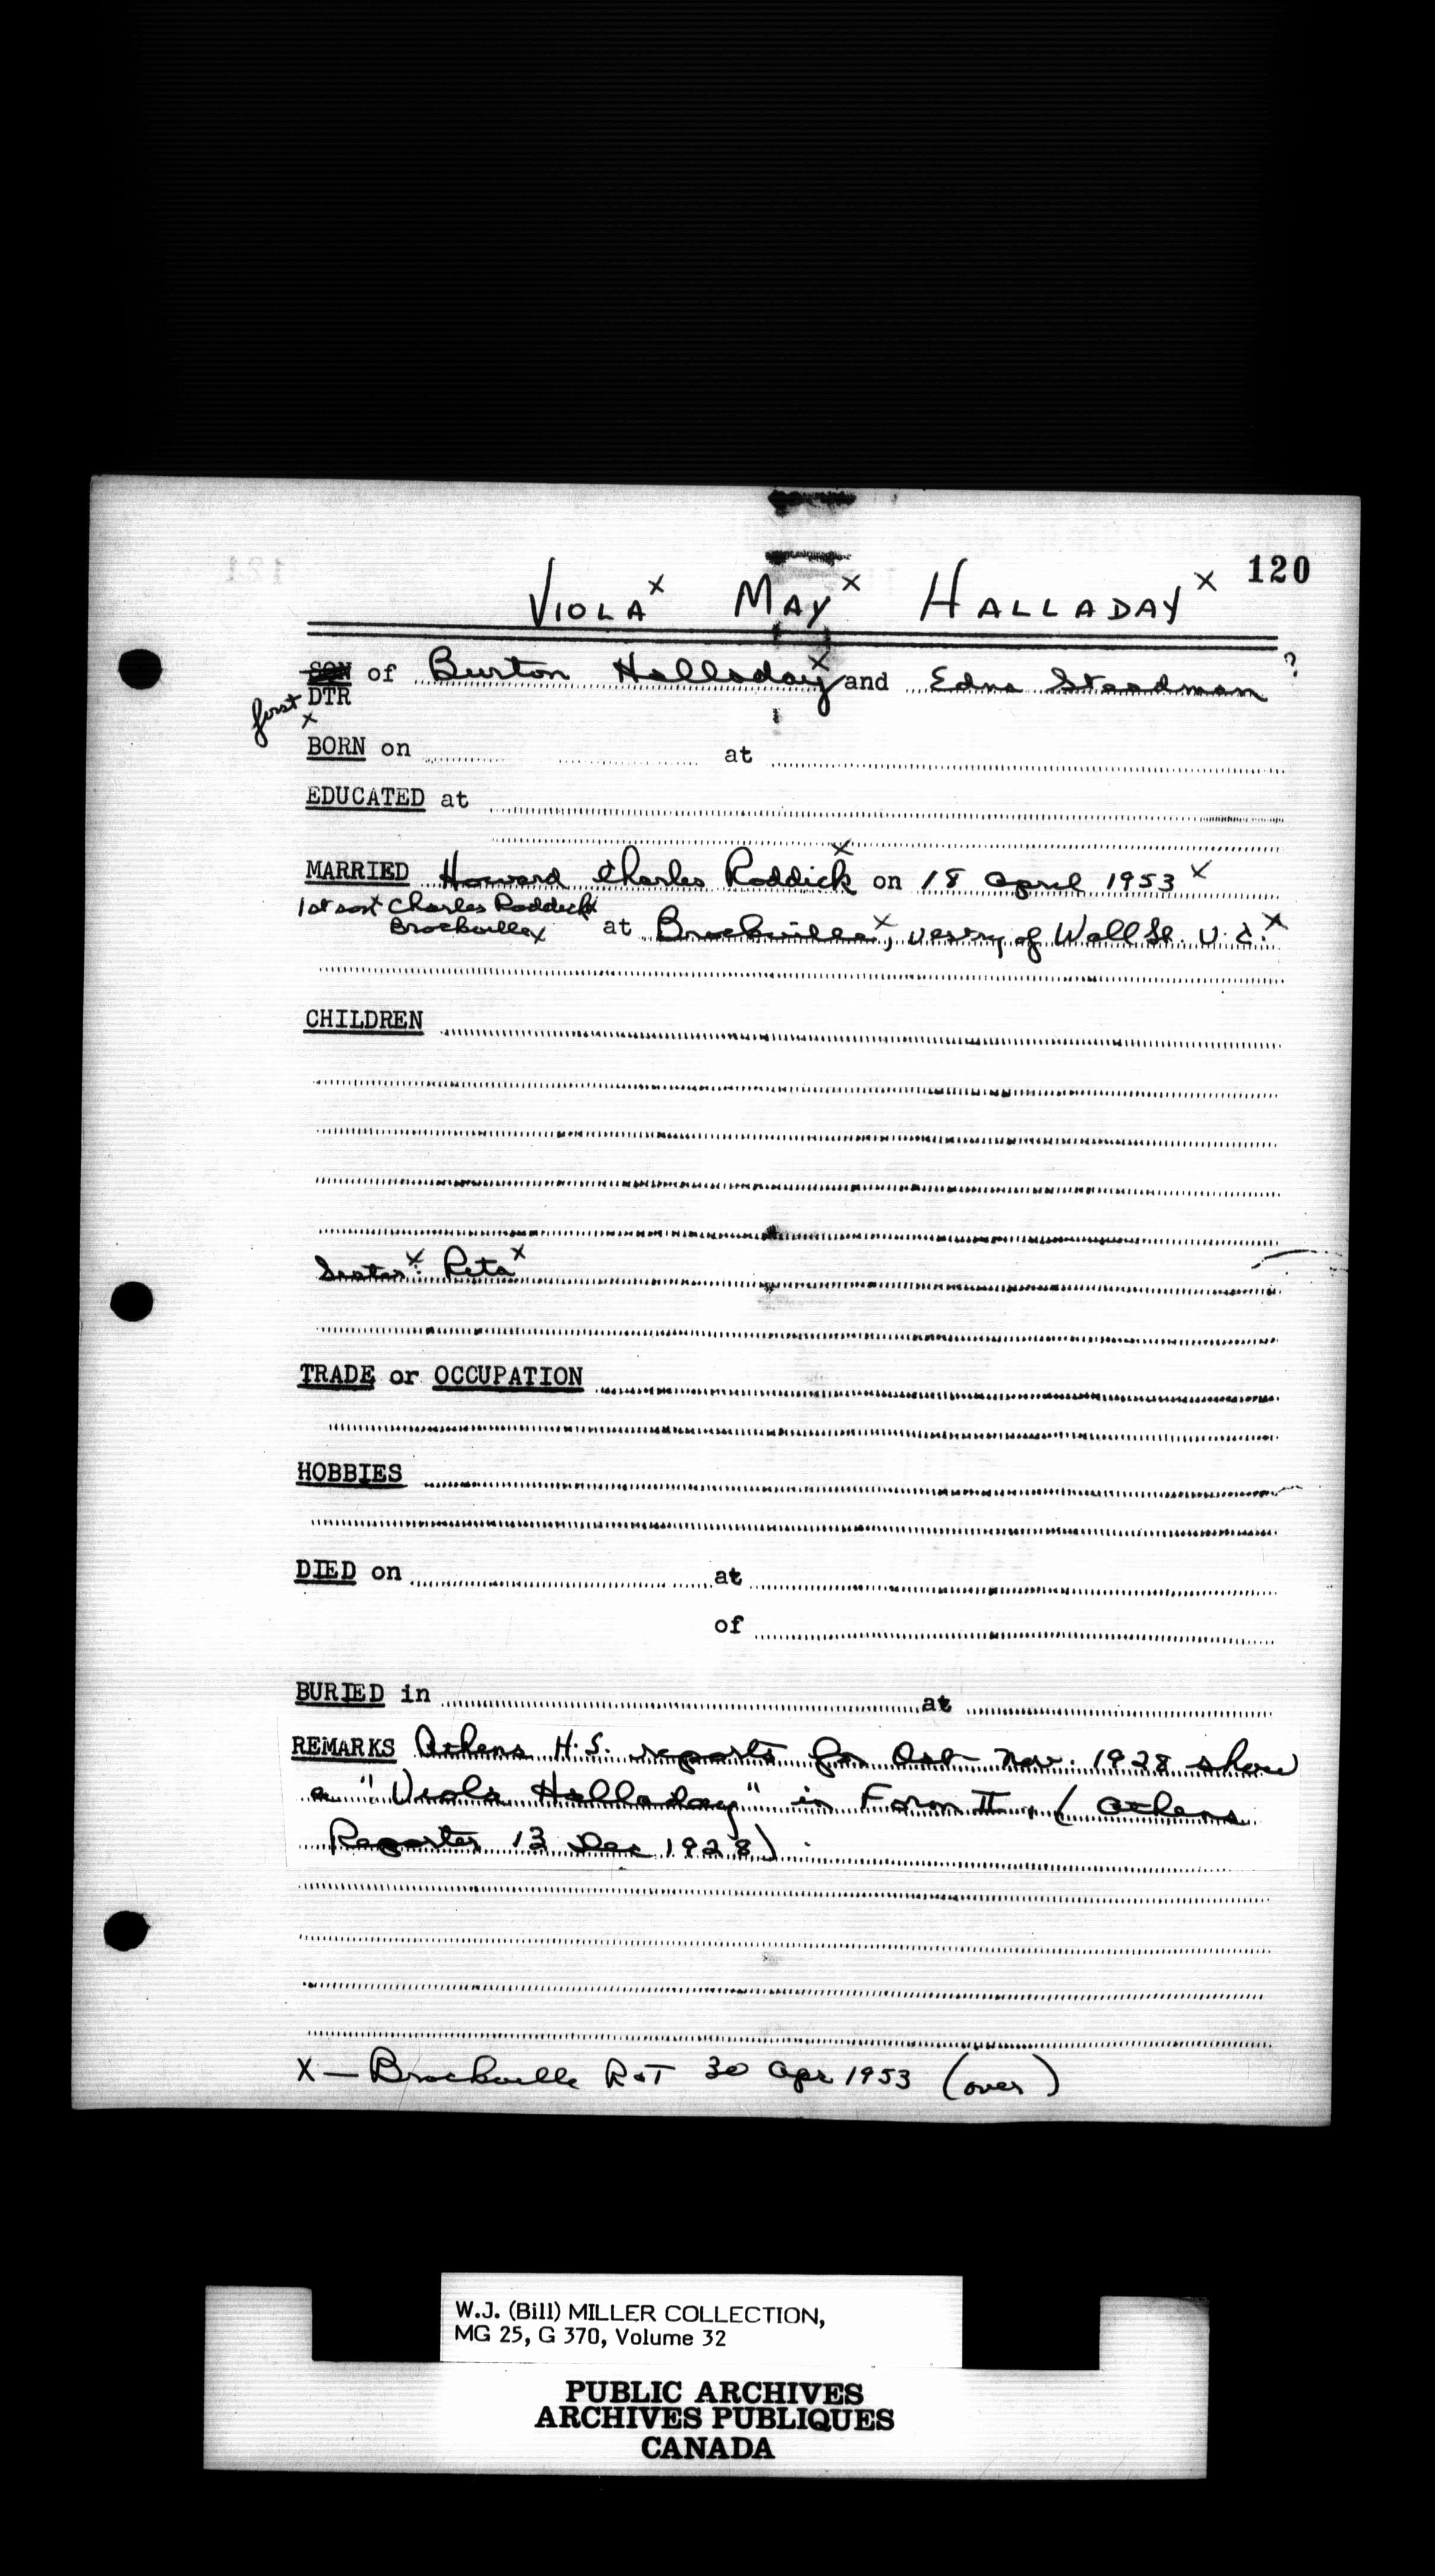 120
VIOLA x MAY x HALLADAY x
SON of Burton Halladay x and Edna Steadman ?
first DTR
x
BORN on at
EDUCATED at
MARRIED Howard Charles Roddick x on 18 April 1953 x
1st son Charles Roddick x
Brockville x at Brockville x, vestry of Wall St. U.C. x
CHILDREN
Sister x: Reta x
TRADE or OCCUPATION
HOBBIES
DIED on at
of
BURIED in at
REMARKS Athens H.S. reports for Oct - Nov. 1928 show
a "Viola Halladay" in Form II. (Athens
Reporter 13 Dec 1928)
X — Brockville R&T 30 Apr 1953 (over)
W.J. (Bill) MILLER COLLECTION,
MG 25, G 370, Volume 32
PUBLIC ARCHIVES
ARCHIVES PUBLIQUES
CANADA